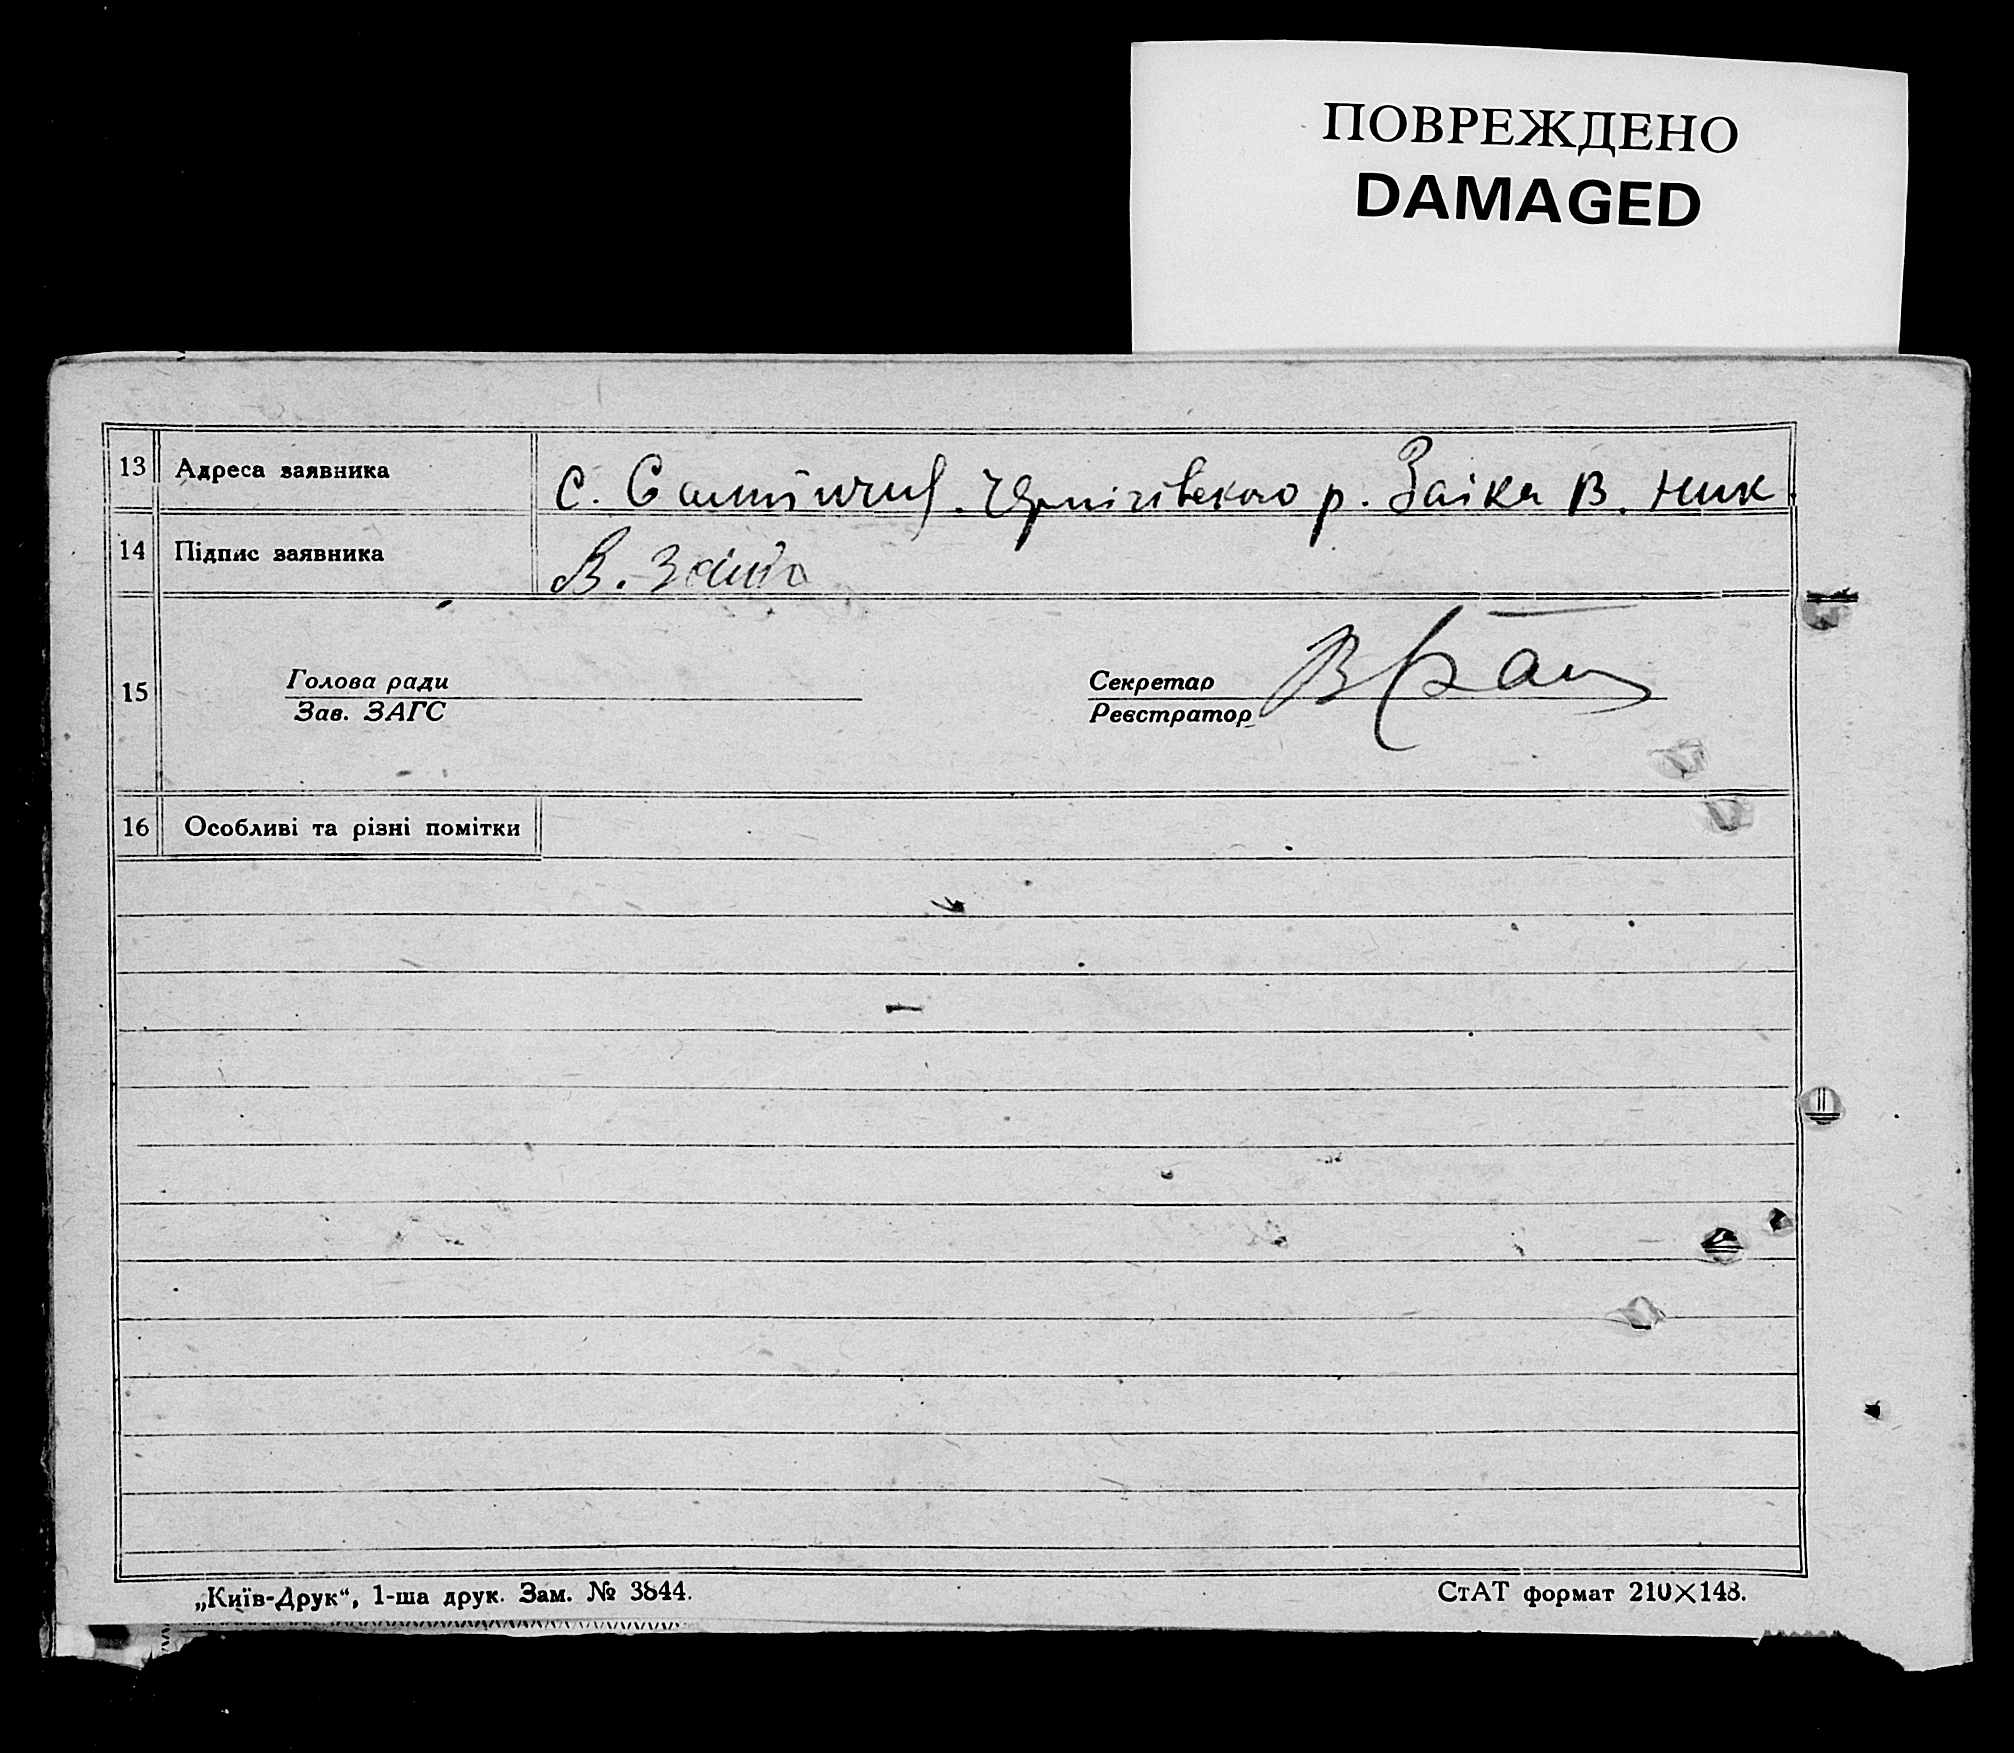 ПОВРЕЖДЕНО
DAMAGED
13 Адреса заявника с. Чернігівського р. Заіка В. Ник.
14 Підпис заявника В. Заіка
15 Голова ради Секретар
Зав. ЗАГС Реєстратор
16 Особливі та різні помітки
„Київ-Друк“, 1-ша друк. Зам. № 3844. СтАТ формат 210×148.